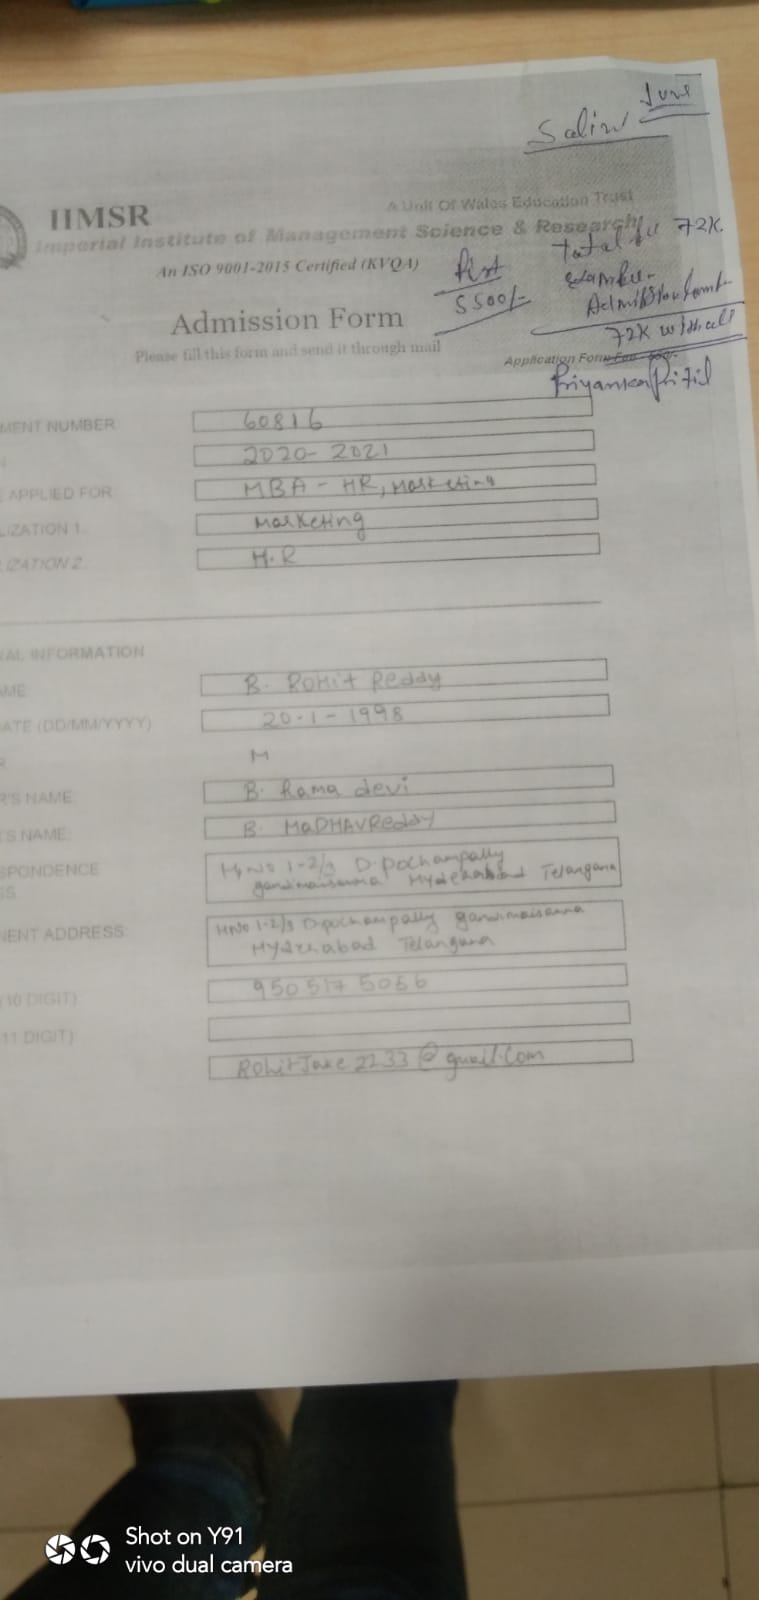 June
Saliw
IIMSR
A Unit Of Wales Education Trust
Imperial Institute of Management Science & Research
total fee 72K.
An ISO 9001-2015 Certified (KVQA)
5500/-
Admission Form
72K with all
Please fill this form and send it through mail
Application Form Fee
Priyanka
MENT NUMBER 60816
2020-2021
APPLIED FOR MBA - HR, Marketing
LIZATION 1. Marketing
IZATION 2. H.R
NAL INFORMATION
AME B. Rohit Reddy
DATE (DD/MM/YYYY) 20-1-1998
M
R'S NAME: B. Rama devi
'S NAME: B. MADHAVReddy
SPONDENCE H/No 1-2/3 D.pochampally
SS gandimaisamma Hyderabad Telangana
NENT ADDRESS HNo 1-2/3 D.pochampally gandimaisamma
Hyderabad Telangana
(10 DIGIT) 950517 5066
11 DIGIT)
RohitJake2233@gmail.com
Shot on Y91
vivo dual camera